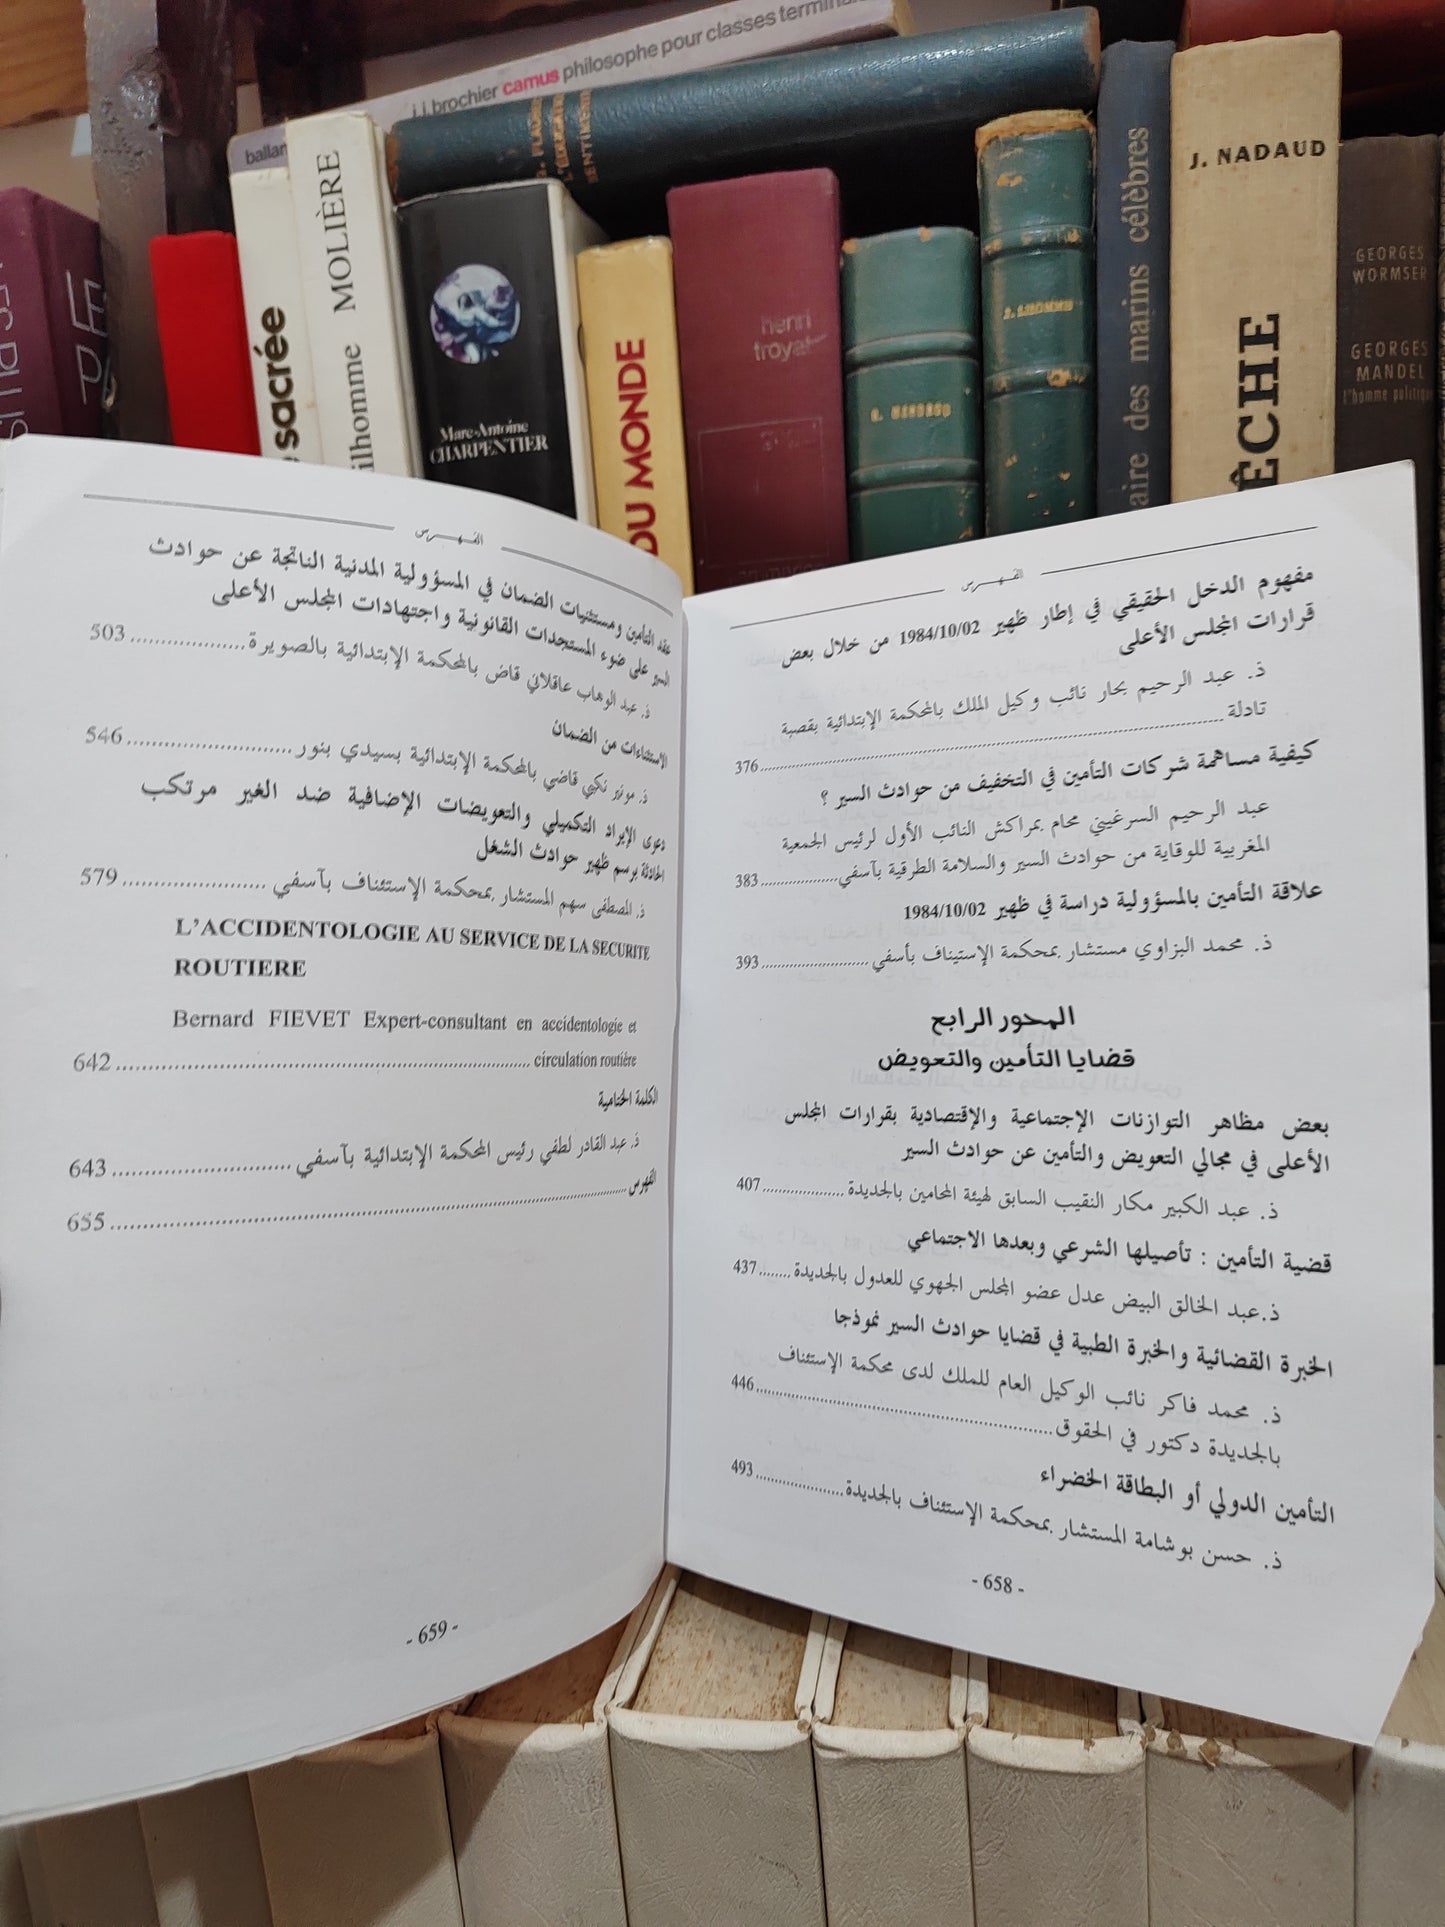 j.j.brochier camus philosophe pour classes
G. FLAUBERT
L'EDUCATION
SENTIMENTALE
sacrée
MOLIÈRE
Marc-Antoine
CHARPENTIER
DU MONDE
henri
troyat
aire des marins célèbres
J. NADAUD
ÊCHE
GEORGES
WORMSER
GEORGES
MANDEL
l'homme politique
الفهرس
مفهوم الدخل الحقيقي في إطار ظهير 1984/10/02 من خلال بعض
قرارات المجلس الأعلى
ذ. عبد الرحيم بحار نائب وكيل الملك بالمحكمة الإبتدائية بقصبة
تادلة ........ 376
كيفية مساهمة شركات التأمين في التخفيف من حوادث السير ؟
عبد الرحيم السرغيني محام بمراكش النائب الأول لرئيس الجمعية
المغربية للوقاية من حوادث السير والسلامة الطرقية بآسفي ........ 383
علاقة التأمين بالمسؤولية دراسة في ظهير 1984/10/02
ذ. محمد البزاوي مستشار بمحكمة الإستيناف بأسفي ........ 393
المحور الرابع
قضايا التأمين والتعويض
بعض مظاهر التوازنات الإجتماعية والإقتصادية بقرارات المجلس
الأعلى في مجالي التعويض والتأمين عن حوادث السير
ذ. عبد الكبير مكار النقيب السابق لهيئة المحامين بالجديدة ........ 407
قضية التأمين : تأصيلها الشرعي وبعدها الاجتماعي
ذ.عبد الخالق البيض عدل عضو المجلس الجهوي للعدول بالجديدة ........ 437
الخبرة القضائية والخبرة الطبية في قضايا حوادث السير نموذجا
ذ. محمد فاكر نائب الوكيل العام للملك لدى محكمة الإستئناف
بالجديدة دكتور في الحقوق ........ 446
التأمين الدولي أو البطاقة الخضراء
ذ. حسن بوشامة المستشار بمحكمة الإستئناف بالجديدة ........ 493
- 658 -
الفهرس
عقد التأمين ومستثنيات الضمان في المسؤولية المدنية الناتجة عن حوادث
السير على ضوء المستجدات القانونية واجتهادات المجلس الأعلى
ذ. عبد الوهاب عاقلاني قاض بالمحكمة الإبتدائية بالصويرة ........ 503
الاستثناءات من الضمان
ذ. مونير نكبي قاضي بالمحكمة الإبتدائية بسيدي بنور ........ 546
دعوى الإيراد التكميلي والتعويضات الإضافية ضد الغير مرتكب
الحادثة برسم ظهير حوادث الشغل
ذ. المصطفى سهم المستشار بمحكمة الإستئناف بآسفي ........ 579
L'ACCIDENTOLOGIE AU SERVICE DE LA SECURITE
ROUTIERE
Bernard FIEVET Expert-consultant en accidentologie et
circulation routière ........ 642
الكلمة الختامية
ذ. عبد القادر لطفي رئيس المحكمة الإبتدائية بآسفي ........ 643
الفهرس ........ 655
- 659 -